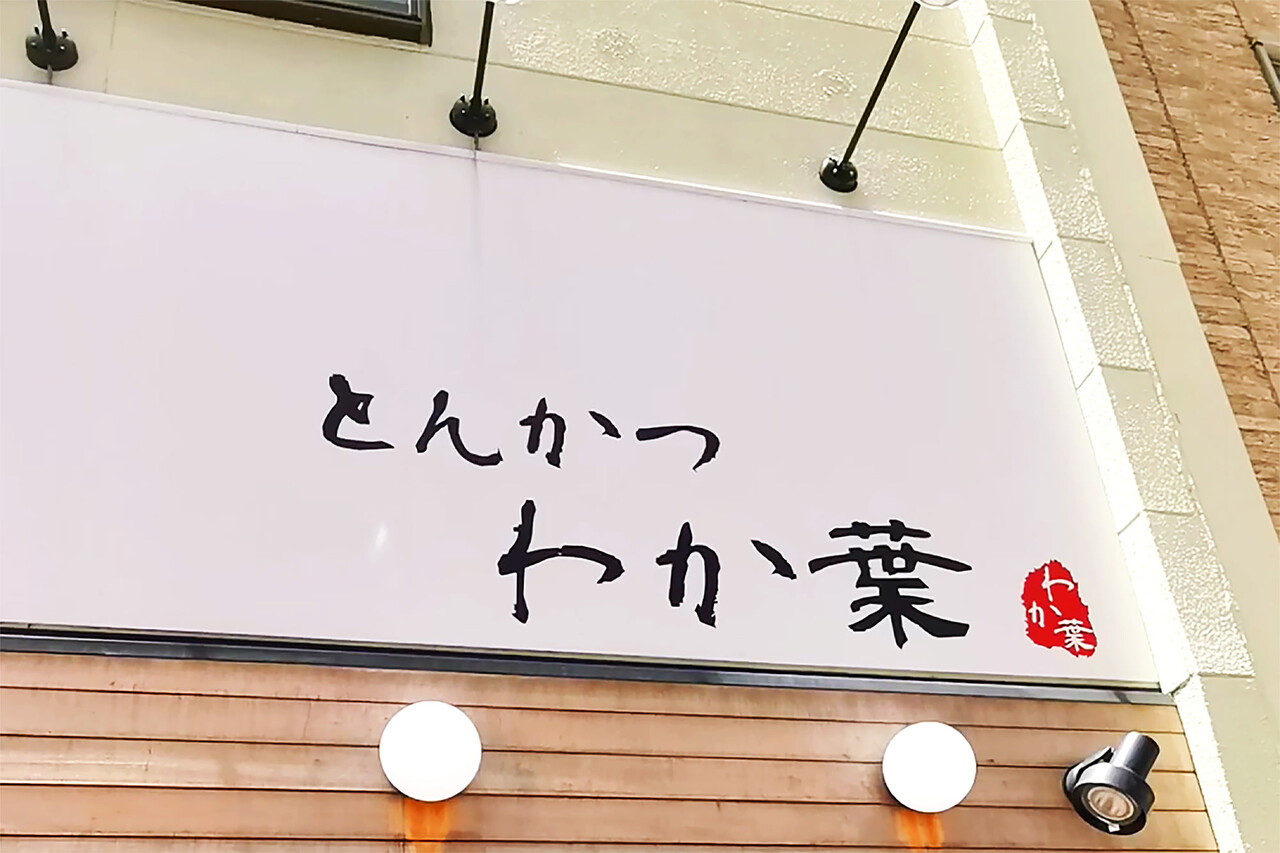 とんかつ
わか葉
わか葉